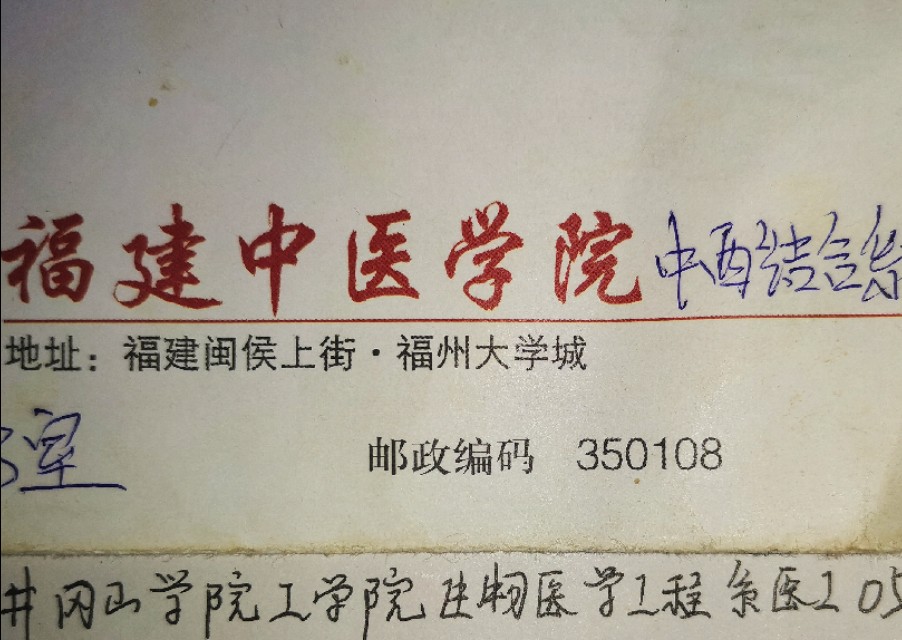 福建中医学院 中西结合系
地址：福建闽侯上街·福州大学城
室 邮政编码 350108
井冈山学院工学院生物医学工程系医工05